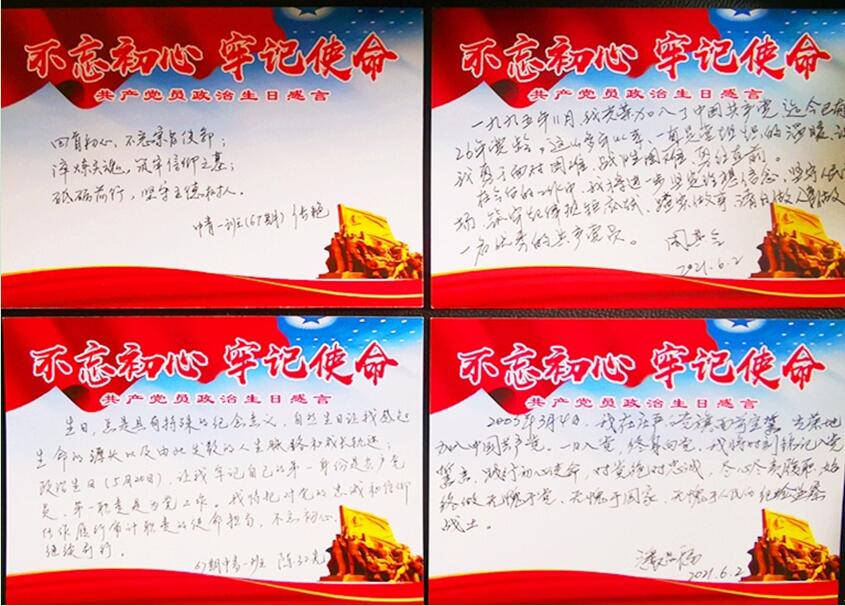 不忘初心 牢记使命
共产党员政治生日感言
回首初心，不忘宗旨使命；
淬炼夫魂，筑牢信仰之基；
砥砺前行，坚守立德树人。
中青一班(67期)
不忘初心 牢记使命
共产党员政治生日感言
一九九五年11月，我光荣加入了中国共产党，迄今已有
26年党龄，这山多年以来，一直是党组织的温暖，让
我勇于面对困难，战胜困难，勇往直前。
在今后的工作中，我将进一步坚定理想信念，坚守人民
场，筑牢纪律规矩底线，踏实做事，清白做人，争做
一名优秀的共产党员。
2021.6.2
不忘初心 牢记使命
共产党员政治生日感言
生日，总是具有特殊的纪念意义，自然生日让我感知
生命的源头以及由此发散的人生脉络和成长轨迹；
政治生日(5月20日)，让我牢记自己的第一身份是共产党
员、第一职责是为党工作。我将把对党的忠诚和信仰
化作履行审计职责的使命担当，不忘初心
继续前行。
67期中青一班
不忘初心 牢记使命
共产党员政治生日感言
2005年3月4日，我在庄严的党旗面前宣誓，光荣地
加入中国共产党。一日入党，终身向党。我将时刻铭记入党
誓言，践行初心使命，对党绝对忠诚，尽心尽责履职，始
终做无愧于党、无愧于国家、无愧于人民的纪检监察
战士。
2021.6.2